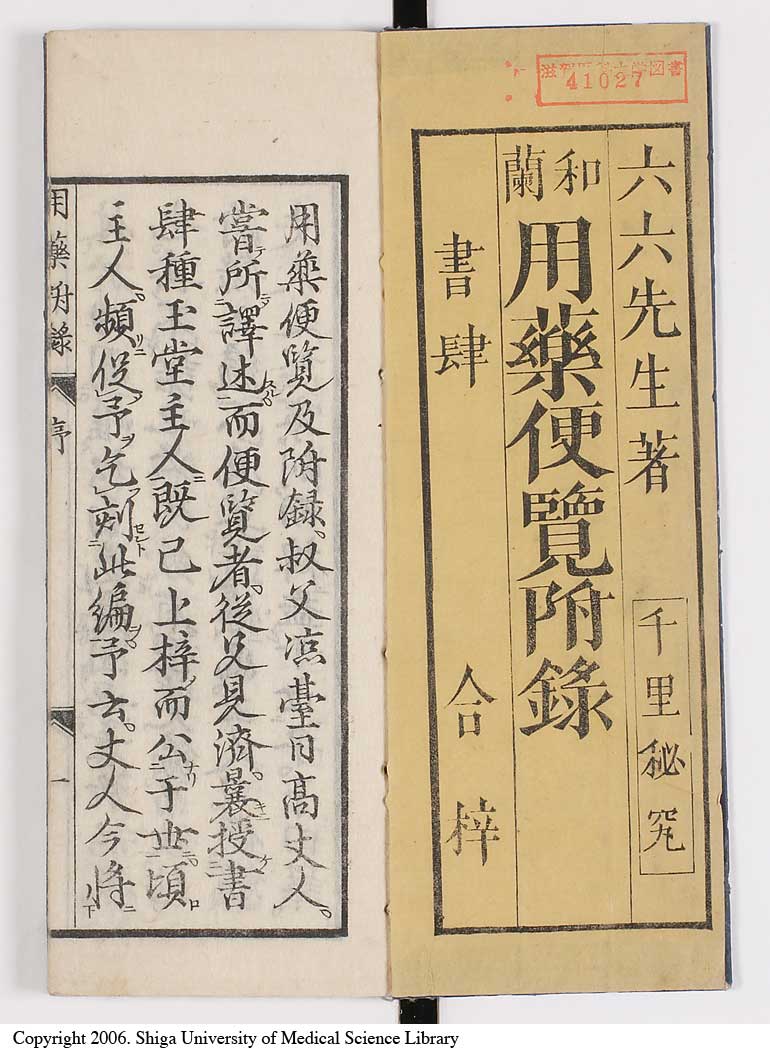 滋賀医科大学図書
41027
六六先生著
千里秘究
和蘭
用藥便覽附錄
書肆 合梓
用藥便覽及附録叔父凉臺日高丈人
嘗所譯述而便覽者從兄見濟曩授書
肆種玉堂主人既已上梓而公于世頃
主人頻促予乞刻此編予云丈人今將
用藥附錄 序 一
Copyright 2006. Shiga University of Medical Science Library